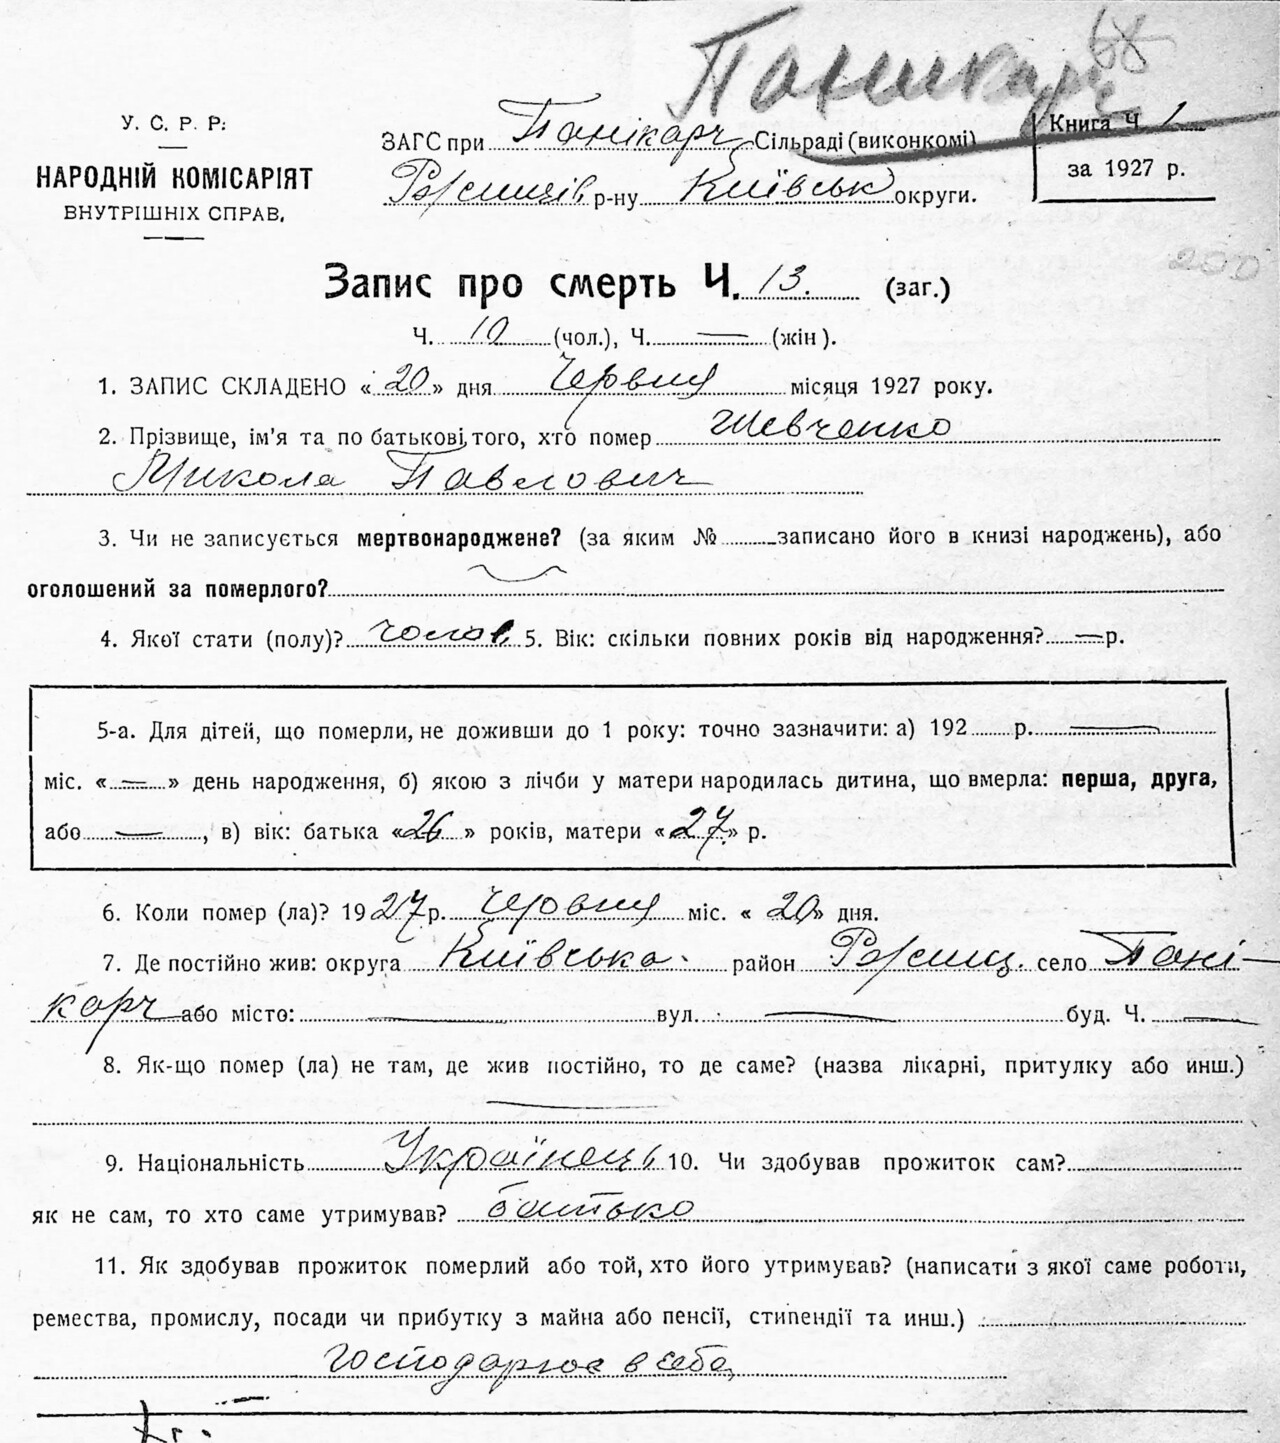 Панікарч
68
У. С. Р. Р.
НАРОДНІЙ КОМІСАРІЯТ
ВНУТРІШНІХ СПРАВ.
ЗАГС при Панікарч Сільраді (виконкомі)
Ржищів р-ну Київськ округи.
Книга Ч. 1
за 1927 р.
200
Запис про смерть Ч. 13. (заг.)
Ч. 10 (чол.), Ч. — (жін).
1. ЗАПИС СКЛАДЕНО «20» дня Червня місяця 1927 року.
2. Прізвище, ім'я та по батькові того, хто помер Шевченко
Микола Павлович
3. Чи не записується мертвонароджене? (за яким № записано його в книзі народжень), або
оголошений за померлого?
4. Якої стати (полу)? чолов. 5. Вік: скільки повних років від народження? — р.
5-а. Для дітей, що померли, не доживши до 1 року: точно зазначити: а) 192 р. —
міс. «—» день народження, б) якою з лічби у матери народилась дитина, що вмерла: перша, друга,
або —, в) вік: батька «26» років, матери «27» р.
6. Коли помер (ла)? 1927 р. Червня міс. «20» дня.
7. Де постійно жив: округа Київська район Ржищ. село Пані-
карч або місто: — вул. — буд. Ч. —
8. Як-що помер (ла) не там, де жив постійно, то де саме? (назва лікарні, притулку або инш.)
—
9. Національність Українець 10. Чи здобував прожиток сам?
як не сам, то хто саме утримував? батько
11. Як здобував прожиток померлий або той, хто його утримував? (написати з якої саме роботи,
ремества, промислу, посади чи прибутку з майна або пенсії, стипендії та инш.)
господарює в себе